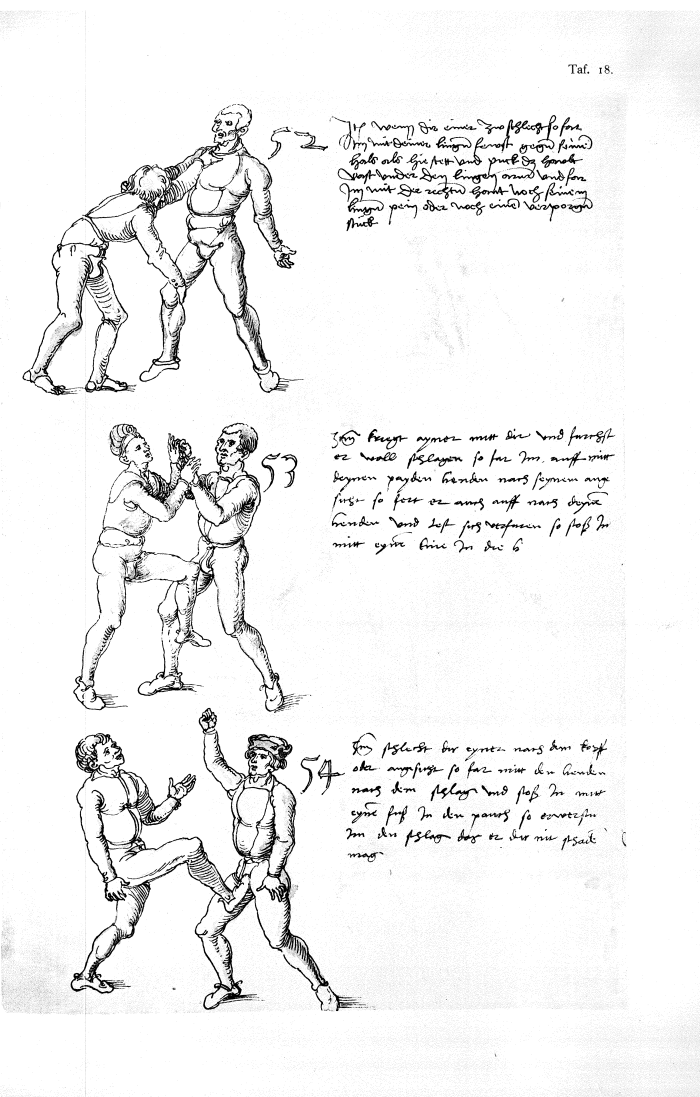 Taf. 18.
52
Itm wenn dir einer zu schlecht so far
Im mit deiner lingen henst gegen seine
hals als hie stett und puck dz haubt
vast under den lingen arme und far
Im mit der rechten hant noch seinem
lingen pein oder noch eine verporgen
stuck
53
Itm kriegt ayner mitt dir und furchst
er woll schlagen so far Im auff mitt
deynen payden henden nach seynem ang
sicht so fert er auch auff nach deyne
henden und so stoß In
mitt eyne knie In die h
54
Itm schlecht dir eyner nach dem kopff
oder angsicht so far mitt den henden
nach dem schlag und stoß In mitt
eyne fuß In den pauch so erwersu
Im den schlag das er dir nit schade
mag